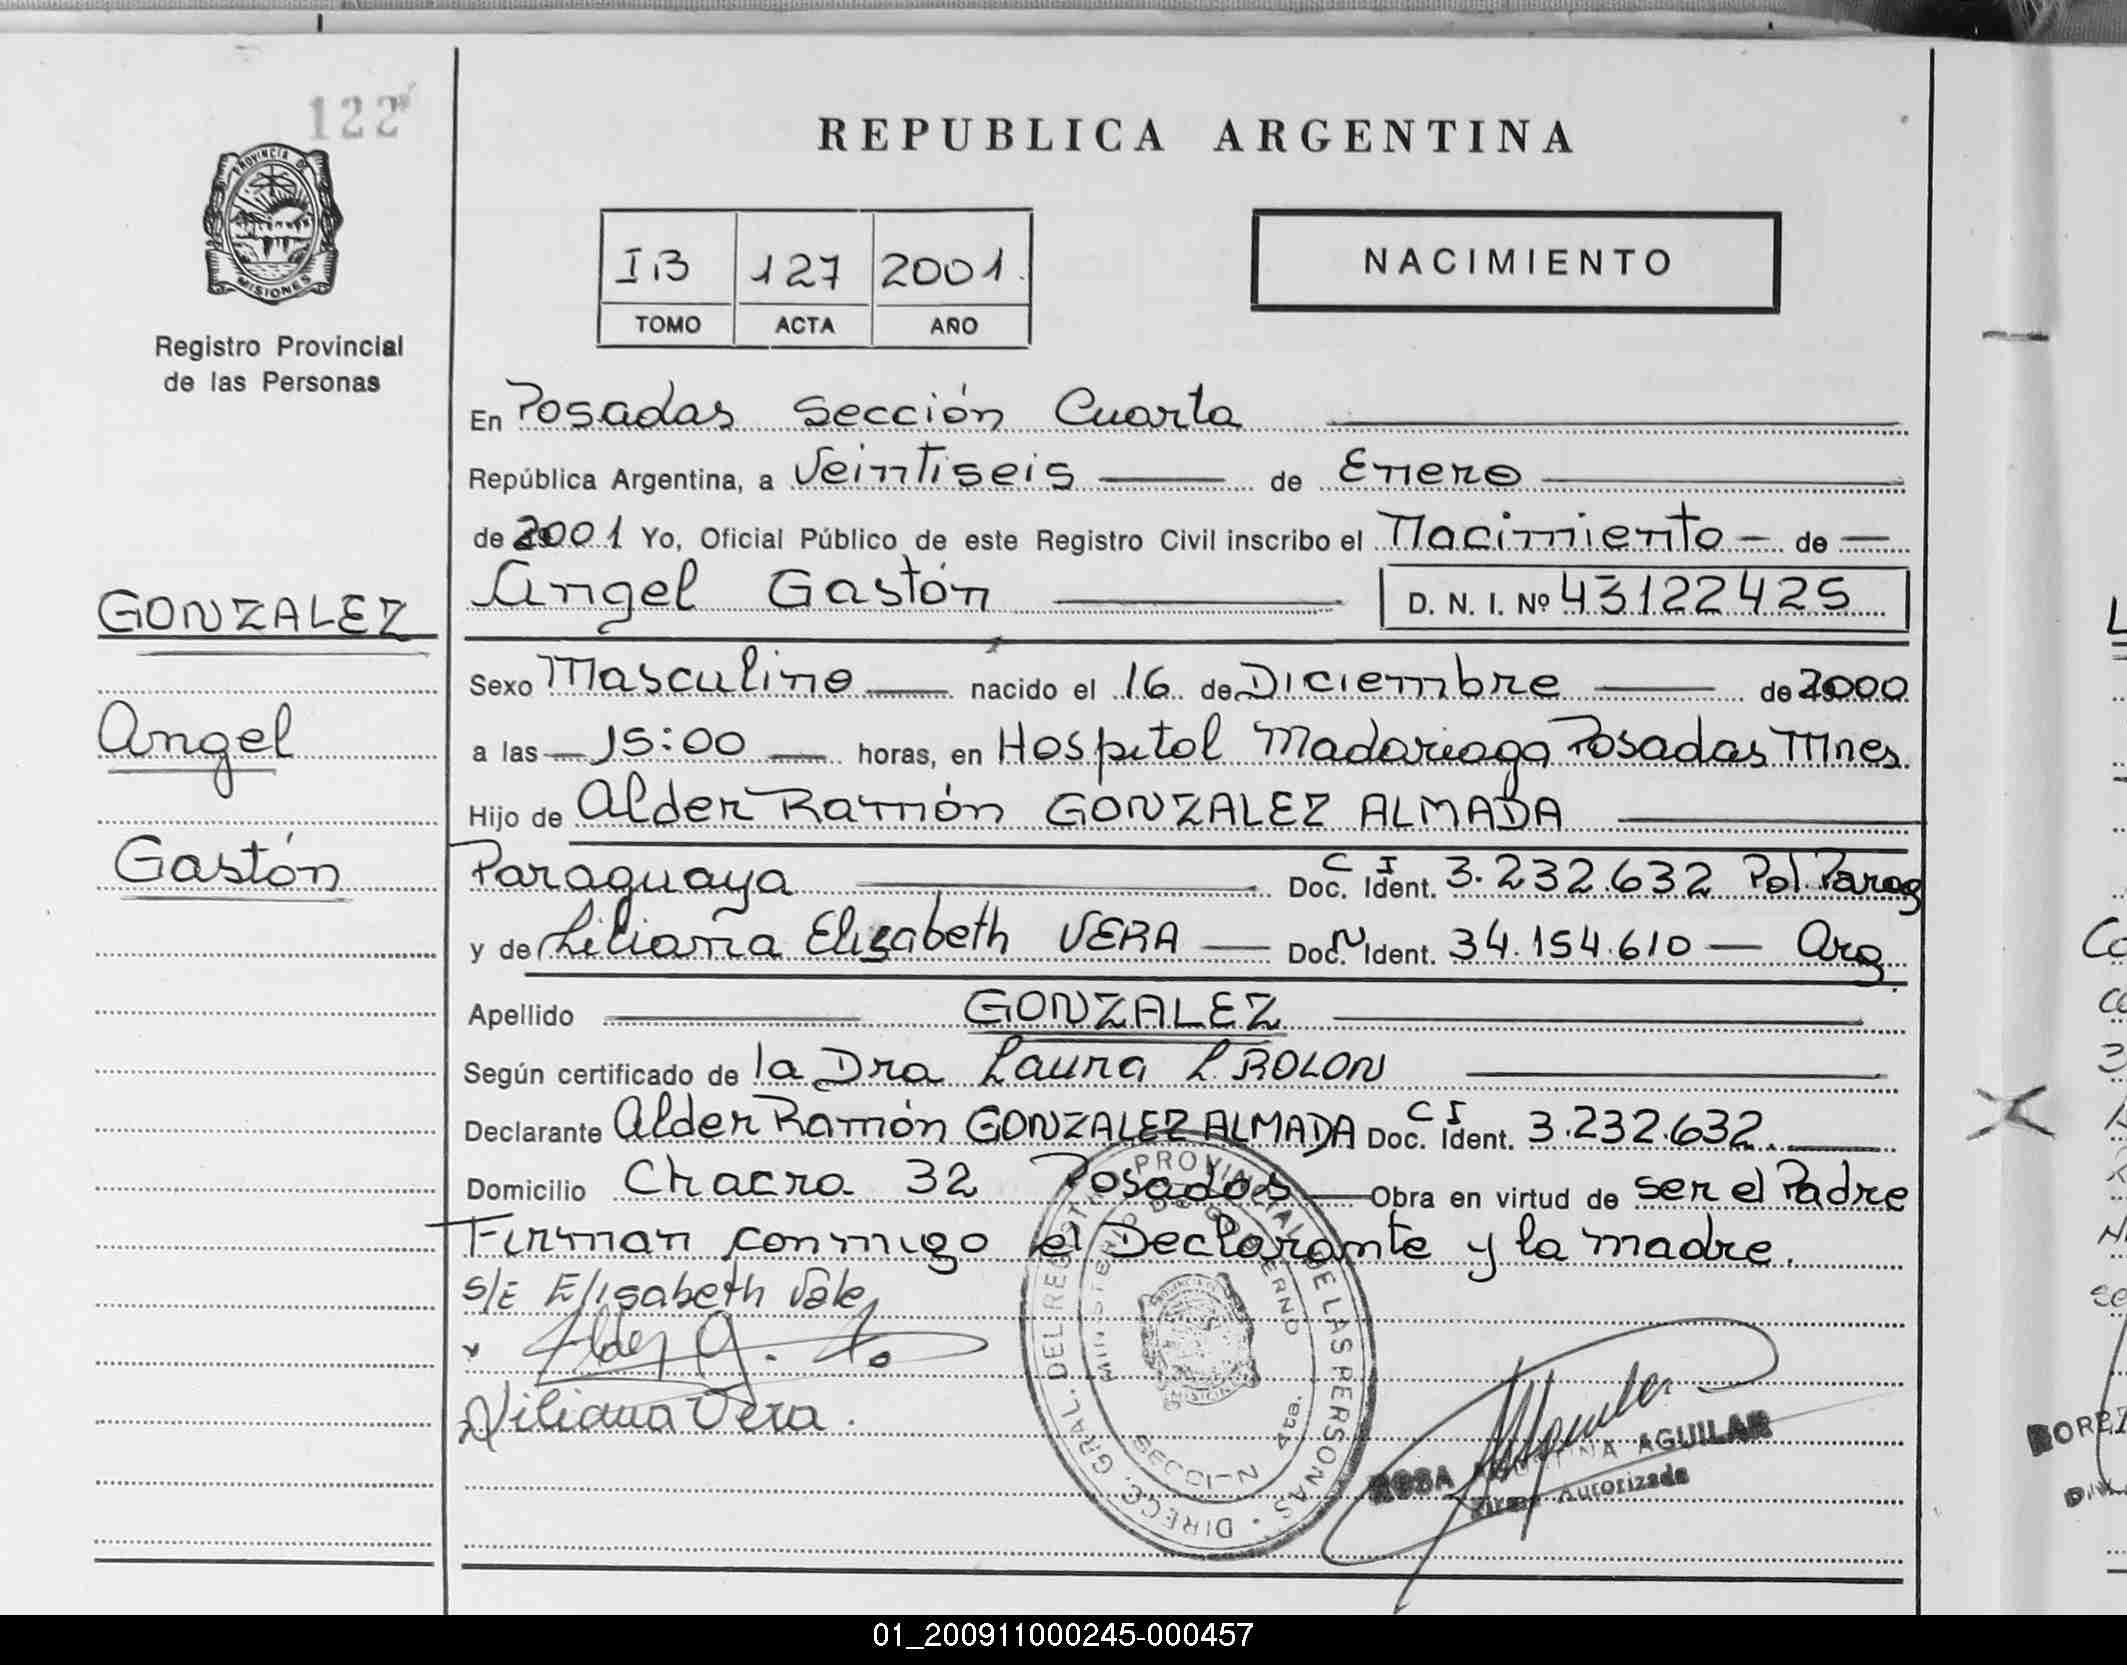 122
REPUBLICA ARGENTINA
PROVINCIA DE
MISIONES
Registro Provincial
de las Personas
I B 127 2001
TOMO ACTA AÑO
NACIMIENTO
En Posadas Sección Cuarta
República Argentina, a Veintiseis de Enero
de 2001 Yo, Oficial Público de este Registro Civil inscribo el Nacimiento de
Angel Gastón D. N. I. Nº 43122425
GONZALEZ
Angel
Gastón
Sexo Masculino nacido el 16 de Diciembre de 2000
a las 15:00 horas, en Hospital Madariaga Posadas Mnes.
Hijo de Alder Ramón GONZALEZ ALMADA
Paraguaya Doc. Ident. C I 3.232.632 Pol. Parag
y de Liliana Elizabeth VERA Doc. N Ident. 34.154.610 Arg.
Apellido GONZALEZ
Según certificado de la Dra Laura L. ROLON
Declarante Alder Ramón GONZALEZ ALMADA Doc. Ident. C I 3.232.632.
Domicilio Chacra 32 Posadas Obra en virtud de ser el Padre
Firman conmigo el Declarante y la madre.
S/E Elisabeth Vale
Liliana Vera.
DIRECC. GRAL. DEL REGISTRO PROVINCIAL DE LAS PERSONAS
MINISTERIO DE GOBIERNO
4ta.
ROSA AGUILAR
Firma Autorizada
01_200911000245-000457